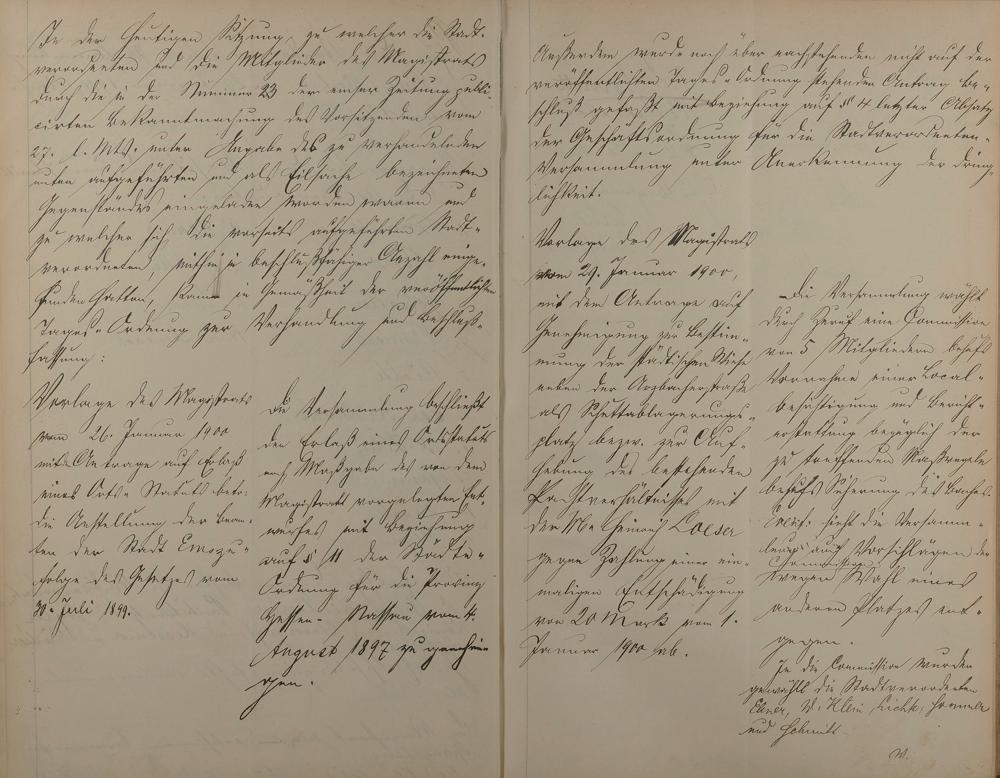 In der heutigen Sitzung, zu welcher die Stadt-
verordneten und die Mitglieder des Magistrats
durch die in der Nummer 23 der emser Zeitung publi-
cirten Bekanntmachung des Vorsitzenden vom
27. l. Mts. unter Angabe des zu verhandelnden
unten aufgeführten und als Eilsache bezeichneten
Gegenstandes eingeladen worden waren und
zu welcher sich die vorseits aufgeführten Stadt-
verordneten, mithin in beschlußfähiger Anzahl einge-
funden hatten, kam in Gemäßheit der veröffentlichten
Tages-Ordnung zur Verhandlung und Beschluß-
fassung:
Vorlage des Magistrats
vom 26. Januar 1900
mit Antrage auf Erlaß
eines Orts-Statuts betr.
die Anstellung der Beam-
ten der Stadt Ems zu-
folge des Gesetzes vom
30. Juli 1899.
Die Versammlung beschließt
den Erlaß eines Ortsstatuts
nach Maßgabe des von dem
Magistrat vorgelegten Ent-
wurfes mit Beziehung
auf § 11 der Städte-
Ordnung für die Provinz
Hessen-Nassau vom 4.
August 1897 zu genehmi-
gen.
Außerdem wurde noch über nachstehenden nicht auf der
veröffentlichten Tages-Ordnung stehenden Antrag Be-
schluß gefaßt mit Beziehung auf § 4 letzter Absatz
der Geschäftsordnung für die Stadtverordneten-
Versammlung unter Anerkennung der Dring-
lichkeit.
Vorlage des Magistrats
vom 29. Januar 1900,
mit dem Antrage auf
Genehmigung zur Bestim-
mung der städtischen Wiese
neben der Arzbacherstraße
als Schuttablagerungs-
platz bezw. zur Auf-
hebung des bestehenden
Pachtverhältnisses mit
dem Heinrich Loeser
gegen Zahlung einer ein-
maligen Entschädigung
von 20 Mark vom 1.
Januar 1900 ab.
Die Versammlung wählt
durch Zuruf eine Commission
von 5 Mitgliedern behufs
Vornahme einer Local-
besichtigung und Bericht-
erstattung bezüglich der
zu treffenden Maßregeln
behufs Sicherung des Baches.
sieht die Versamm-
lung auch Vorschlägen der
Commission
wegen Wahl eines
anderen Platzes ent-
gegen.
In die Commission wurden
gewählt die Stadtverordneten
Ebner, W. Klein,
und Schmitt.
W.